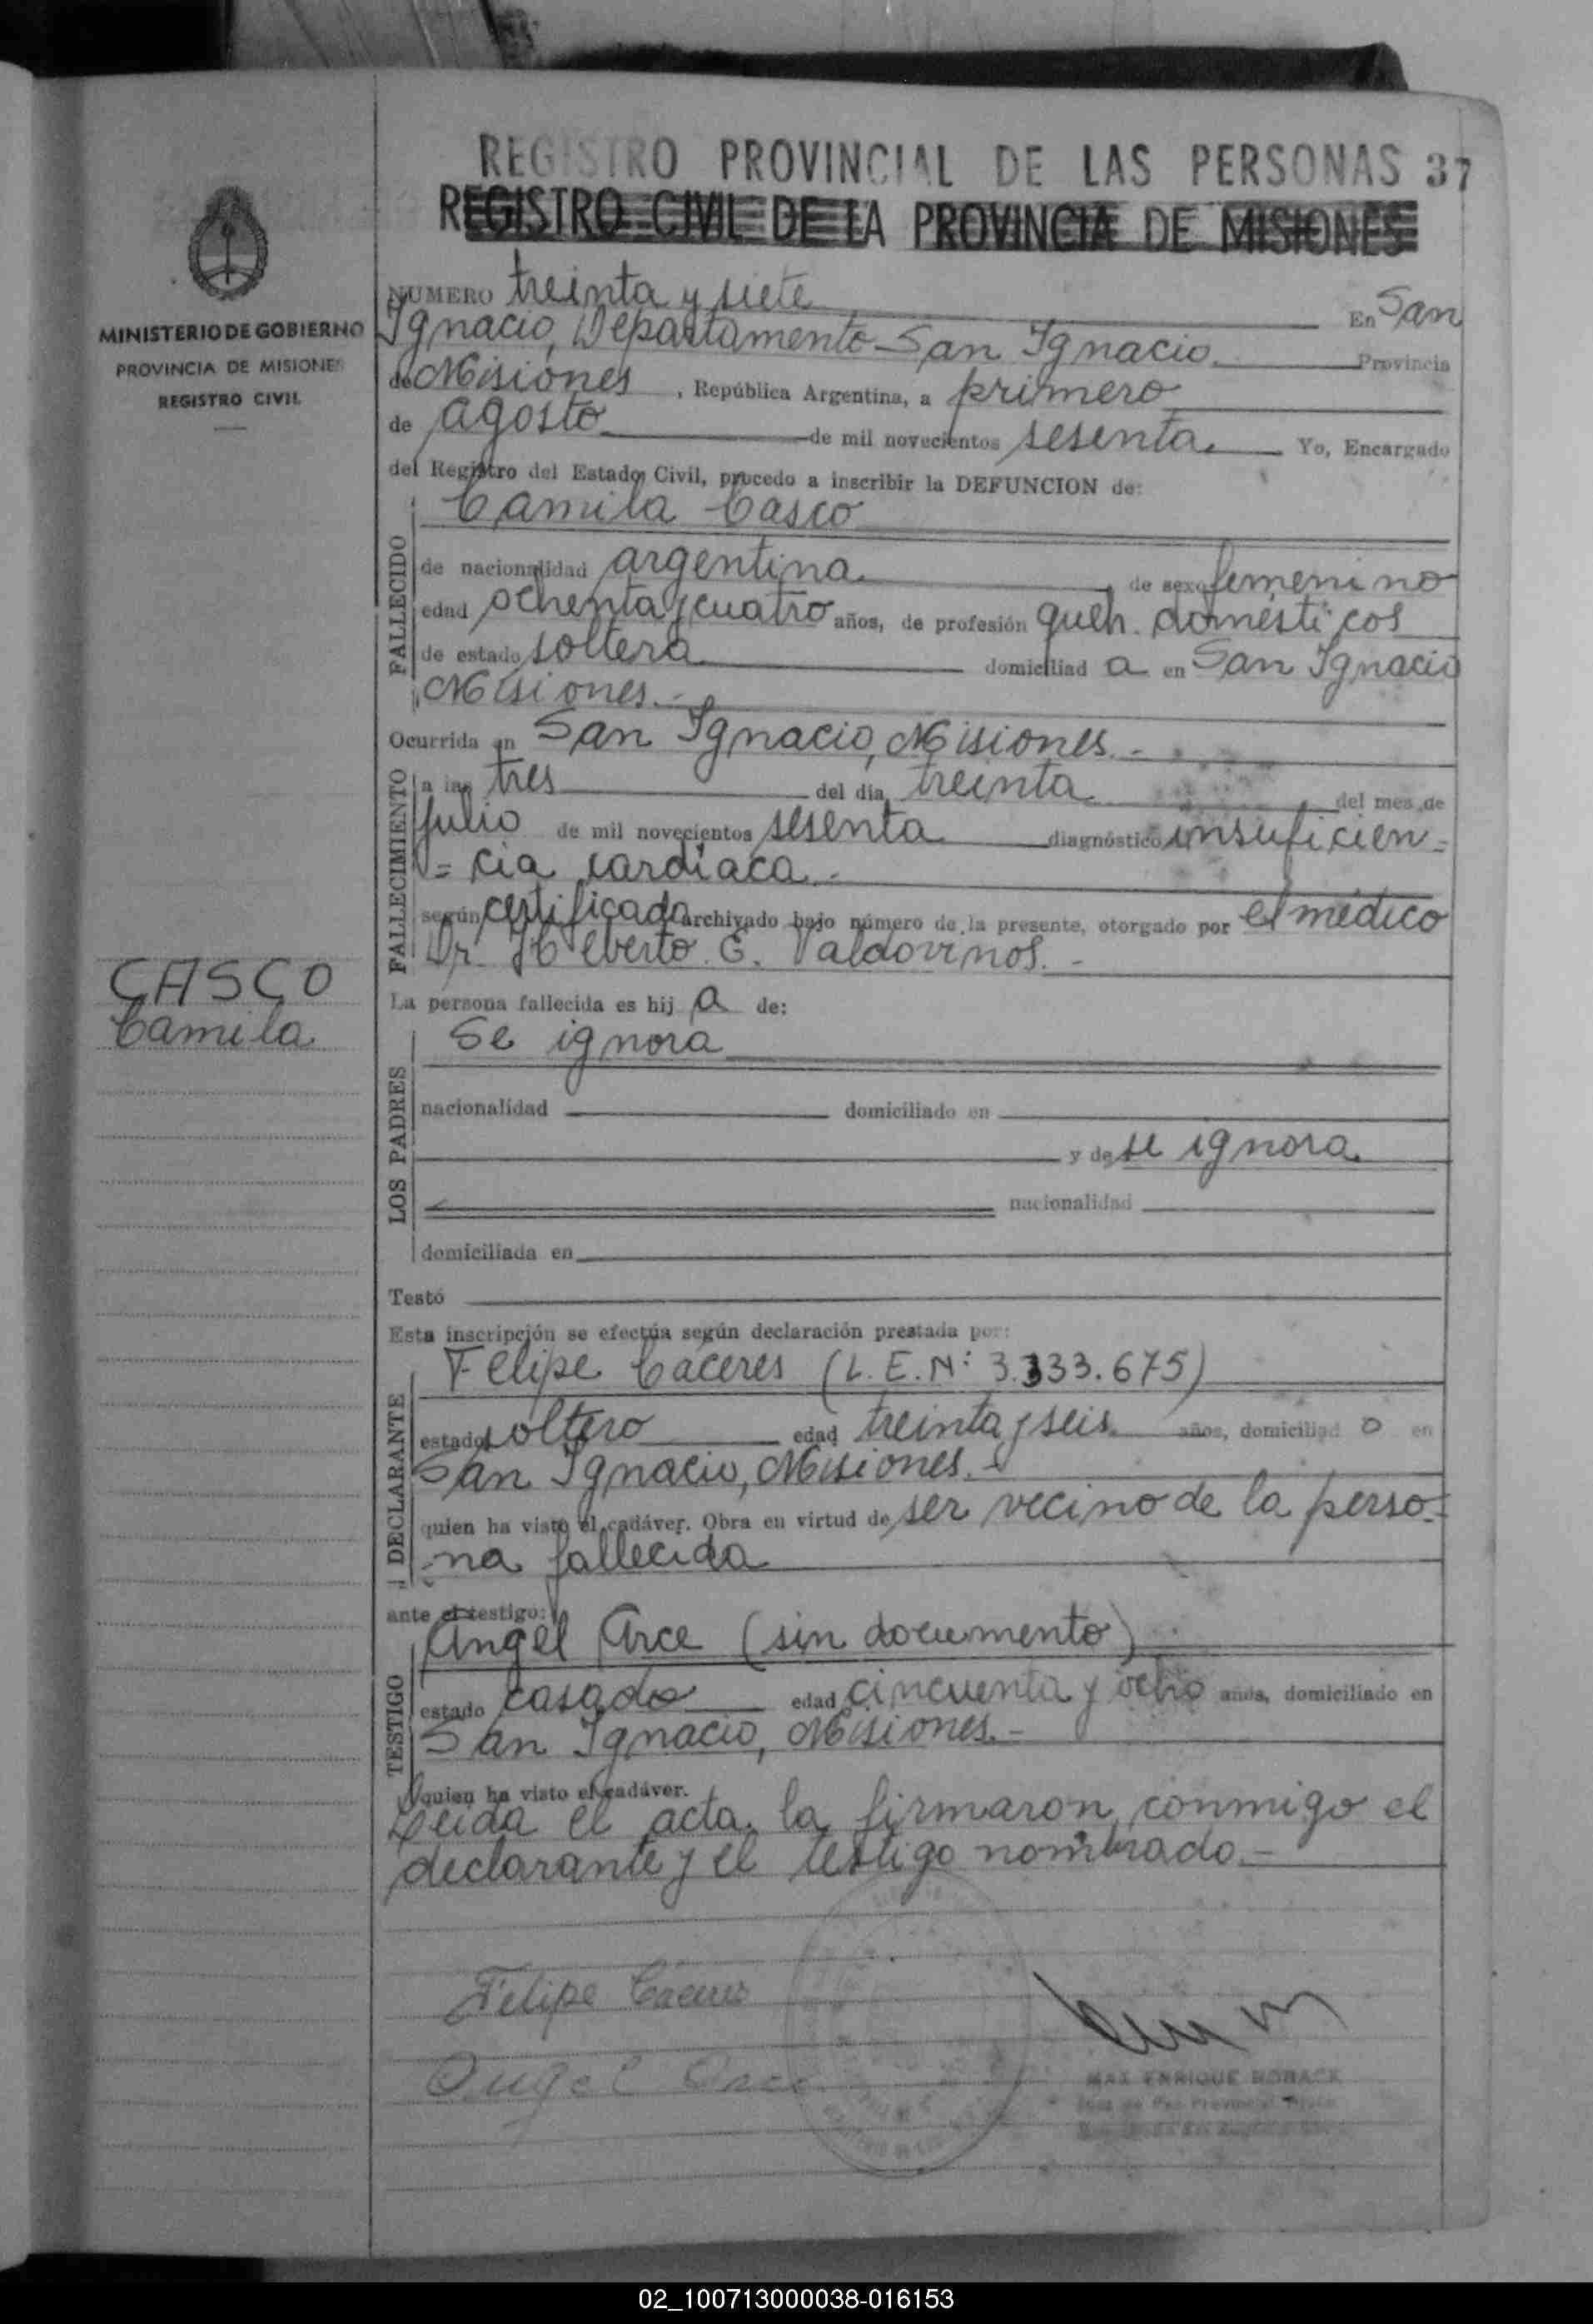 REGISTRO PROVINCIAL DE LAS PERSONAS 37
REGISTRO CIVIL DE LA PROVINCIA DE MISIONES
MINISTERIO DE GOBIERNO
PROVINCIA DE MISIONES
REGISTRO CIVIL
CASCO
Camila
NUMERO treinta y siete En San
Ignacio, Departamento San Ignacio. Provincia
de Misiones, República Argentina, a primero
de agosto de mil novecientos sesenta. Yo, Encargado
del Registro del Estado Civil, procedo a inscribir la DEFUNCION de:
FALLECIDO
Camila Casco
de nacionalidad argentina, de sexo femenino
edad ochenta y cuatro años, de profesión queh. domésticos
de estado soltera domiciliad a en San Ignacio
Misiones.-
Ocurrida en San Ignacio, Misiones.-
FALLECIMIENTO
a las tres del día treinta del mes de
julio de mil novecientos sesenta diagnóstico insuficien=
=cia cardíaca.-
según certificado archivado bajo número de la presente, otorgado por el médico
Dr. Valdovinos.-
La persona fallecida es hij a de:
LOS PADRES
Se ignora
nacionalidad domiciliado en
y de se ignora.
nacionalidad
domiciliada en
Testó
Esta inscripción se efectúa según declaración prestada por:
DECLARANTE
Felipe Cáceres (L.E.N: 3.333.675)
estado soltero edad treinta y seis años, domiciliad o en
San Ignacio, Misiones.-
quien ha visto el cadáver. Obra en virtud de ser vecino de la perso=
=na fallecida
ante el testigo:
TESTIGO
Angel Arce (sin documento)
estado casado edad cincuenta y ocho años, domiciliado en
San Ignacio, Misiones.-
quien ha visto el cadáver.
Leída el acta, la firmaron conmigo el
declarante y el testigo nombrado.-
Felipe Cáceres
Angel Arce
MAX ENRIQUE
02_100713000038-016153